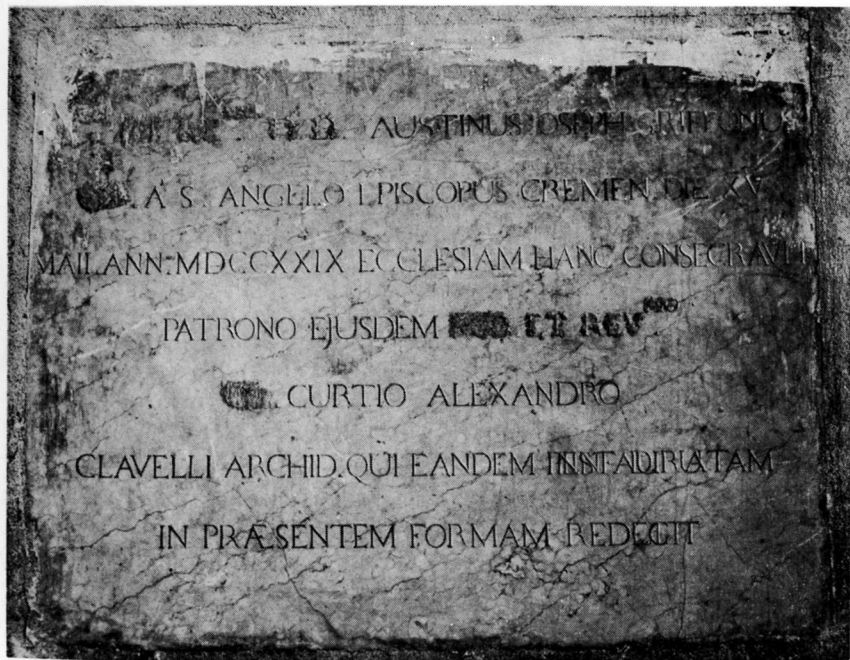 AUSTINUS IOSEPH GRIFFONUS
A S. ANGELO EPISCOPUS CREMEN. DIE XV
MAII ANN. MDCCXXIX ECCLESIAM HANC CONSECRAVIT
PATRONO EJUSDEM ET REV
CURTIO ALEXANDRO
CLAVELLI ARCHID. QUI EANDEM
IN PRÆSENTEM FORMAM REDEGIT